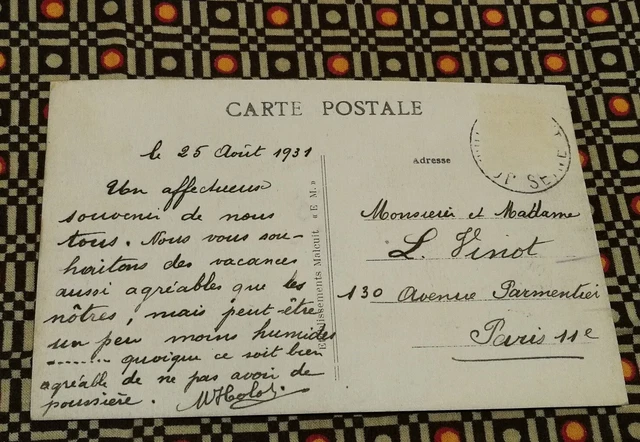 CARTE POSTALE
le 25 Août 1931
Un affectueux
souvenir de nous
tous. Nous vous sou-
haitons des vacances
aussi agréables que les
nôtres, mais peut-être
un peu moins humides
........ quoique ce soit bien
agréable de ne pas avoir de
poussière.
Etablissements Malcuit « E M. »
Adresse
SEINE
Monsieur et Madame
L. Vinot
130 Avenue Parmentier
Paris 11e